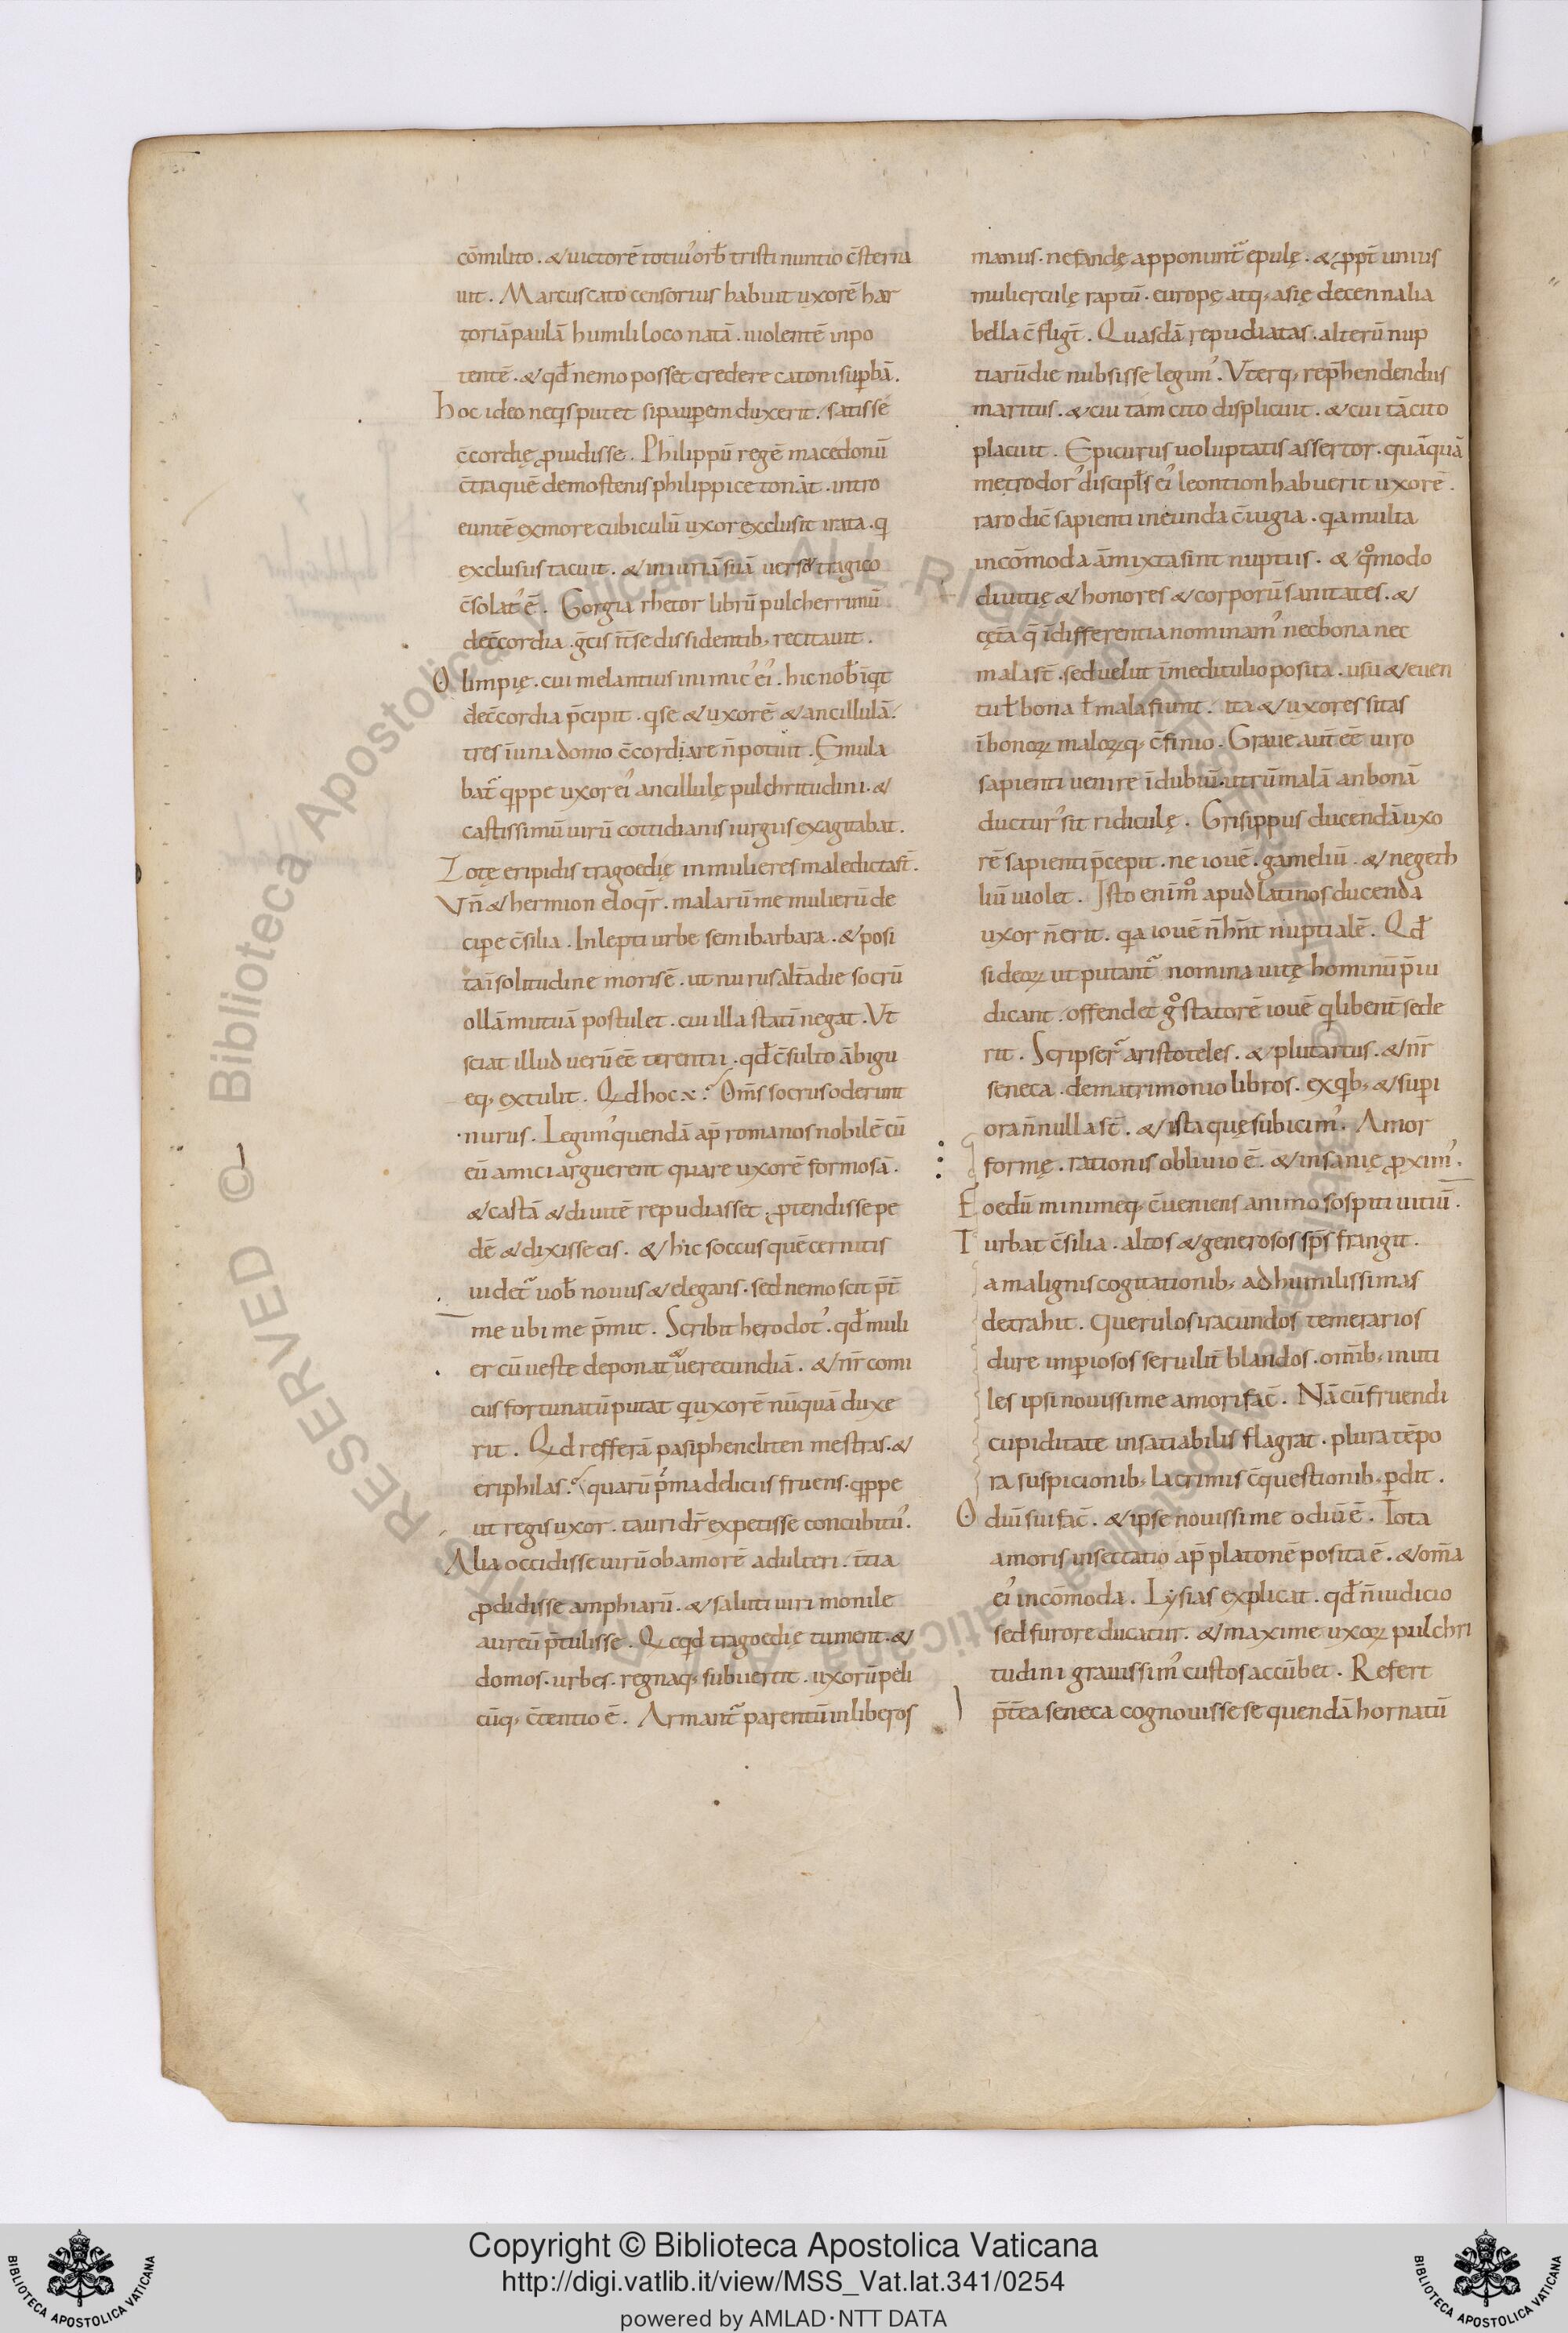 cōmilito . & uictorē totiu᾽ orƀ tristi nuntio c̄sterna
uit . Marcus cato censorius habuit uxorē har
toriā paulā humili loco natā . uiolentē inpo
tentē . & qđ nemo posset credere catoni suꝑbā .
hoc ideo neqͥs putet si pauꝑem duxerit / satis se
c̄cordię ꝓuidisse . Philippū regē macedonū
c̄tra quē demostenis philippice tonāt . intro
euntē ex more cubiculū uxor exclusit irata . qͥ
exclusus tacuit . & iniuriā suā uerso tragico
c̄solat᾽ ē . Gorgia rhetor librū pulcherrimū
de c̄cordia . gͣcis īt se dissidentib; recitauit .
Olimpię . cui melantius inimic᾽ ei᾽ . hic noƀ īqͥt
de c̄cordia p̄cipit . qͥ se & uxorē & ancillulā .
tres ī una domo c̄cordiare n̄ potuit . Emula
bat᷑ qͥppe uxor ei᾽ ancillulę pulchritudini . &
castissimū uirū cottidianis iurgiis exagitabat .
Totę eripidis tragoedię in mulieres maledicta st̄ .
Vn̄ & hermion eloqͥr̄ . malarū me mulierū de
ciꝑe c̄silia . In lepti urbe semibarbara . & posi
ta ī solitudine moris ē . ut nurus alt̄a die socrū
ollā mutuā postulet . cui illa statī negat . Vt
sciat illud uerū ēē terentii . qđ c̄sulto ābigu
eq; extulit . Qͥd hoc ÷ ? Om̄s socrus oderunt
nurus . Legim᾽ quendā ap̄ romanos nobilē cū
eū amici arguerent quare uxorē formosā .
& castā & diuitē repudiasset . ꝓtendisse pe
dē & dixisse eis . & hic soccus quē cernitis
uidet᷑ uoƀ nouus & elegans . sed nemo scit p̄t̄
me ubi me p̄mit . Scribit herodot᾽ . qđ muli
er cū ueste deponat uerecundiā . & nr̄ comi
cus fortunatū putat qͥ uxorē nūquā duxe
rit . Qͥd refferā pasiphen cliten mestras . &
eriphilas ? quarū pͥma deliciis fruens . qͥppe
ut regis uxor . tauri dr̄ expetisse concubitu᾽ .
Alia occidisse uirū ob amorē adulteri . t̄tia
ꝓdidisse amphiarū . & saluti uiri monile
aureū p̄tulisse . Qͥcqͥd tragoedię tument . &
domos . urbes . regnaq; subuertit . uxorū peli
cūq; c̄tentio ē . Armant᷑ parentū in liberos
manus . nefandę apponunt᷑ epulę . & ꝓpt̄ unius
mulierculę raptū . europę atq; asię decennalia
bella c̄fligt̄ . Quasdā repudiatas . alterū nup
tiarū die nubsisse legim᾽ . Vterq; rep̄hendendus
maritus . & cui tam cito displicuit . & cui tā cito
placuit . Epicurus uoluptatis assertor . quāquā
metrodor᾽ discipl̄s ei᾽ leontion habuerit uxorē .
raro dic̄ sapienti ineunda c̄iugia . qͥa multa
incōmoda āmixta sint nuptiis . & qͦmodo
diuitię & honores & corporū sanitates . &
cęt̄a q̄ īdifferentia nominam᾽ nec bona nec
mala st̄ . sed uelut ī meditulio posita . usu & euen
tu ƚ bona ƚ mala fiunt . ita & uxores sitas
ī bonoꝝ maloꝝq; c̄finio . Graue aut̄ ēē uiro
sapienti uenire ī dubiū . utrū malā an bonā
ductur᾽ sit ridiculę . Grisippus ducendā uxo
rē sapienti p̄cepit . ne iouē . gameliū . & negeth
liū uiolet . Isto enī mͦ apud latinos ducenda
uxor n̄ erit . qͥa iouē n̄ hn̄t nuptialē . Qđ
si deoꝝ ut putant᷑ nomina uitę hominū p̄iu
dicant . offendet gͦ statorē iouē qͥ libent̄ sede
rit . Scripser᷑ aristoteles . & plutartus . & nr̄
seneca . de matrimonio libros . ex qͥb; & supi
ora n̄nulla st̄ . & ista quę subicim᾽ . Amor
formę . rationis obliuio ē . & insanię ꝓxim᾽ .
Foedū minimeq; c̄ueniens animo sospiti uitiū .
Turbat c̄silia . altos & generosos sp̄s frangit .
a malignis cogitationib; ad humilissimas
detrahit . querulos iracundos temerarios
dure imꝑiosos seruilit̄ blandos . omīb; inuti
les ipsi nouissime amori fac̄ . Nā cū fruendi
cupiditate insatiabilis flagrat . plura tēpo
ra suspicionib; lacrimis c̄questionib; ꝑdit .
Odiū sui fac̄ . & ipse nouissime odiū ē . Tota
amoris insectatio ap̄ platonē posita ē . & om̄a
ei᾽ incōmoda . Lysias explicat . qđ n̄ iudicio
sed furore ducatur . & maxime uxoꝝ pulchri
tudini grauissim᾽ custos accūbet . Refert
p̄t̄ea seneca cognouisse se quendā hornatū
Copyright © Biblioteca Apostolica Vaticana
http://digi.vatlib.it/view/MSS_Vat.lat.341/0254
powered by AMLAD·NTT DATA
BIBLIOTECA APOSTOLICA VATICANA
BIBLIOTECA APOSTOLICA VATICANA